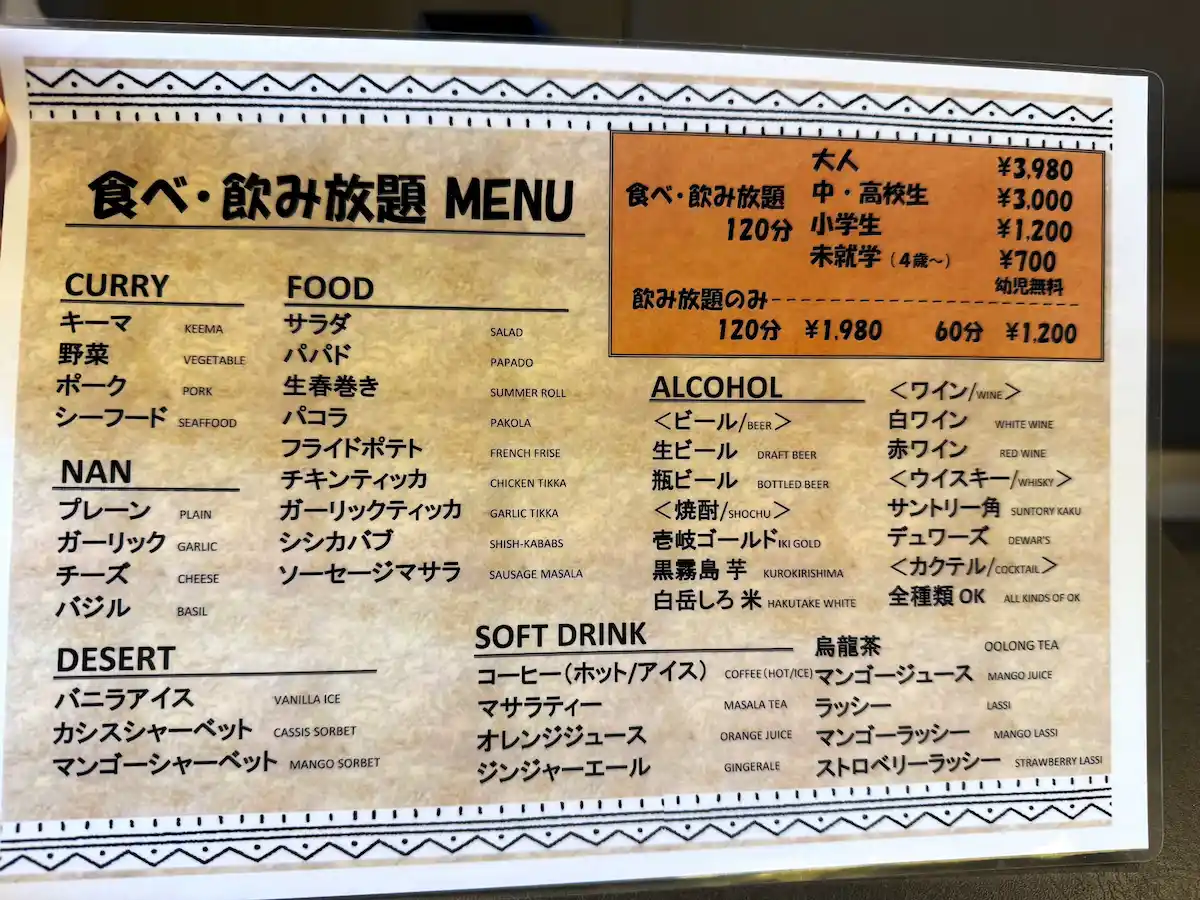 食べ・飲み放題 MENU
食べ・飲み放題
120分
大人 ¥3,980
中・高校生 ¥3,000
小学生 ¥1,200
未就学(4歳~) ¥700
幼児無料
飲み放題のみ
120分 ¥1,980 60分 ¥1,200
CURRY
キーマ KEEMA
野菜 VEGETABLE
ポーク PORK
シーフード SEAFFOOD
NAN
プレーン PLAIN
ガーリック GARLIC
チーズ CHEESE
バジル BASIL
FOOD
サラダ SALAD
パパド PAPADO
生春巻き SUMMER ROLL
パコラ PAKOLA
フライドポテト FRENCH FRISE
チキンティッカ CHICKEN TIKKA
ガーリックティッカ GARLIC TIKKA
シシカバブ SHISH-KABABS
ソーセージマサラ SAUSAGE MASALA
ALCOHOL
<ビール/BEER>
生ビール DRAFT BEER
瓶ビール BOTTLED BEER
<焼酎/SHOCHU>
壱岐ゴールド IKI GOLD
黒霧島 芋 KUROKIRISHIMA
白岳しろ 米 HAKUTAKE WHITE
<ワイン/WINE>
白ワイン WHITE WINE
赤ワイン RED WINE
<ウイスキー/WHISKY>
サントリー角 SUNTORY KAKU
デュワーズ DEWAR'S
<カクテル/COCKTAIL>
全種類OK ALL KINDS OF OK
DESERT
バニラアイス VANILLA ICE
カシスシャーベット CASSIS SORBET
マンゴーシャーベット MANGO SORBET
SOFT DRINK
コーヒー(ホット/アイス) COFFEE(HOT/ICE)
マサラティー MASALA TEA
オレンジジュース ORANGE JUICE
ジンジャーエール GINGERALE
烏龍茶 OOLONG TEA
マンゴージュース MANGO JUICE
ラッシー LASSI
マンゴーラッシー MANGO LASSI
ストロベリーラッシー STRAWBERRY LASSI